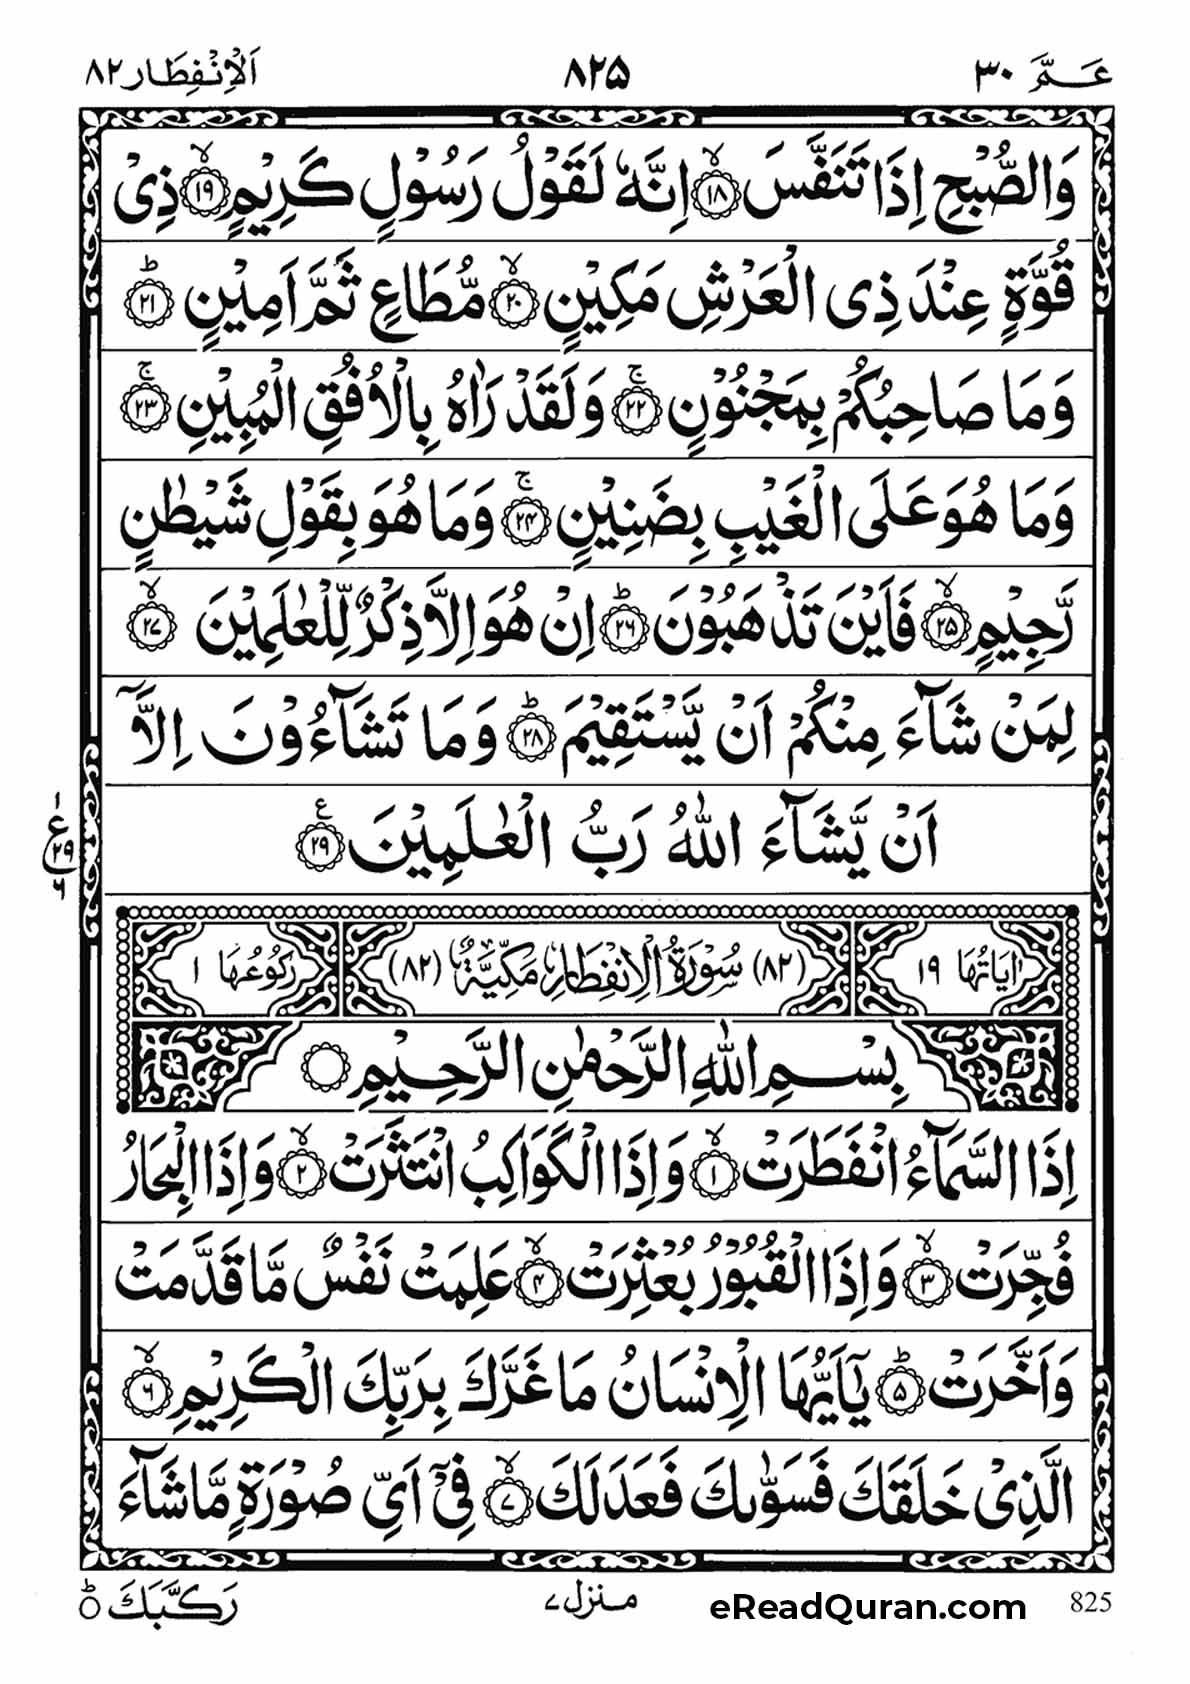 عَمَّ ٣٠ ٨٢٥ اَلْاِنْفِطَار ٨٢
وَالصُّبْحِ اِذَا تَنَفَّسَ ۙ﴿١٨﴾ اِنَّهٗ لَقَوْلُ رَسُوْلٍ كَرِيْمٍ ۙ﴿١٩﴾ ذِيْ
قُوَّةٍ عِنْدَ ذِي الْعَرْشِ مَكِيْنٍ ۙ﴿٢٠﴾ مُّطَاعٍ ثَمَّ اَمِيْنٍ ؕ﴿٢١﴾
وَمَا صَاحِبُكُمْ بِمَجْنُوْنٍ ۚ﴿٢٢﴾ وَلَقَدْ رَاٰهُ بِالْاُفُقِ الْمُبِيْنِ ۚ﴿٢٣﴾
وَمَا هُوَ عَلَى الْغَيْبِ بِضَنِيْنٍ ۚ﴿٢٤﴾ وَمَا هُوَ بِقَوْلِ شَيْطٰنٍ
رَّجِيْمٍ ۙ﴿٢٥﴾ فَاَيْنَ تَذْهَبُوْنَ ؕ﴿٢٦﴾ اِنْ هُوَ اِلَّا ذِكْرٌ لِّلْعٰلَمِيْنَ ۙ﴿٢٧﴾
لِمَنْ شَآءَ مِنْكُمْ اَنْ يَّسْتَقِيْمَ ؕ﴿٢٨﴾ وَمَا تَشَآءُوْنَ اِلَّآ
اَنْ يَّشَآءَ اللّٰهُ رَبُّ الْعٰلَمِيْنَ ﴿٢٩﴾ ع
١
ع
٢٩
٦
اٰيَاتُهَا ١٩ (٨٢) سُوْرَةُ الْاِنْفِطَارِ مَكِّيَّةٌ (٨٢) رُكُوْعُهَا ١
بِسْمِ اللّٰهِ الرَّحْمٰنِ الرَّحِيْمِ
اِذَا السَّمَآءُ انْفَطَرَتْ ۙ﴿١﴾ وَاِذَا الْكَوَاكِبُ انْتَثَرَتْ ۙ﴿٢﴾ وَاِذَا الْبِحَارُ
فُجِّرَتْ ۙ﴿٣﴾ وَاِذَا الْقُبُوْرُ بُعْثِرَتْ ۙ﴿٤﴾ عَلِمَتْ نَفْسٌ مَّا قَدَّمَتْ
وَاَخَّرَتْ ؕ﴿٥﴾ يٰٓاَيُّهَا الْاِنْسَانُ مَا غَرَّكَ بِرَبِّكَ الْكَرِيْمِ ۙ﴿٦﴾
الَّذِيْ خَلَقَكَ فَسَوّٰىكَ فَعَدَلَكَ ۙ﴿٧﴾ فِيْٓ اَيِّ صُوْرَةٍ مَّا شَآءَ
رَكَّبَكَ ؕ
منزل ٧
eReadQuran.com
825